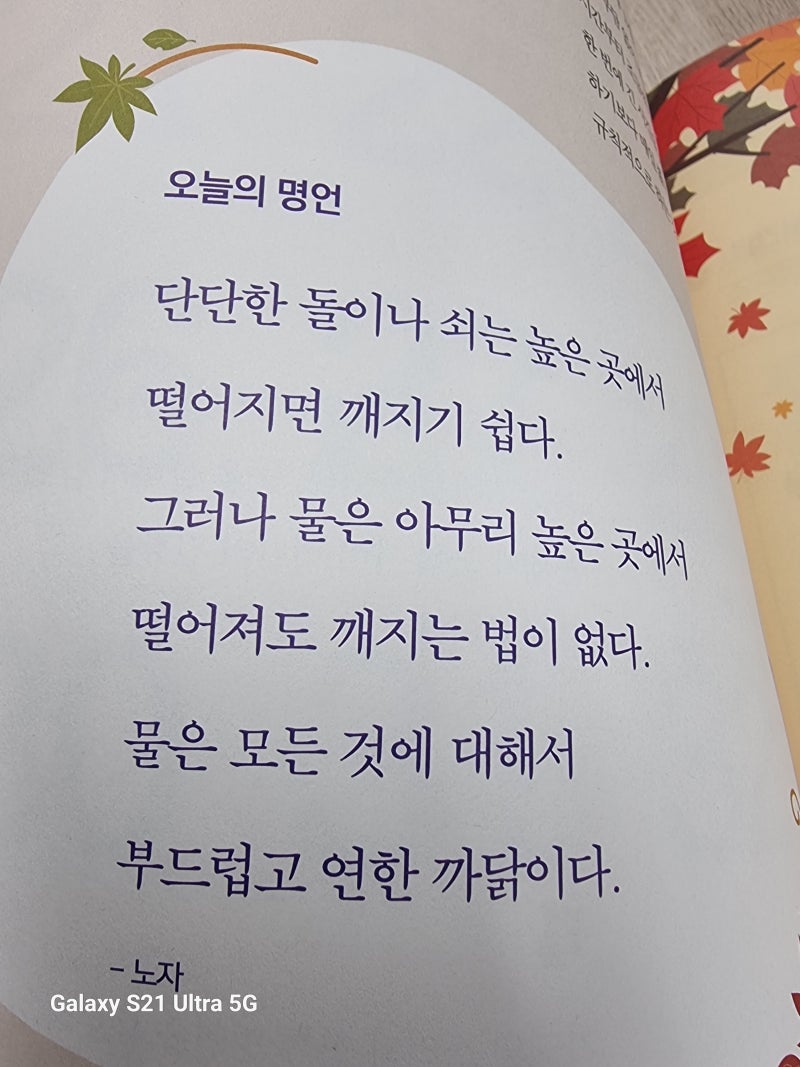 오늘의 명언
단단한 돌이나 쇠는 높은 곳에서
떨어지면 깨지기 쉽다.
그러나 물은 아무리 높은 곳에서
떨어져도 깨지는 법이 없다.
물은 모든 것에 대해서
부드럽고 연한 까닭이다.
- 노자
Galaxy S21 Ultra 5G
한 번에
하기보다
규칙적으로